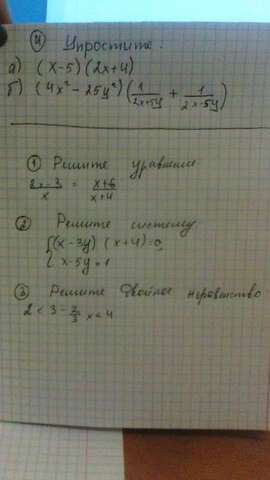 ④ Упростите:
а) (x-5)(2x+4)
б) (4x² - 25y²)(1/(2x+5y) + 1/(2x-5y))
① Решите уравнение
(2x-3)/x = (x+6)/(x+4)
② Решите систему
{(x-3y)(x+4)=0,
{x-5y=1
③ Решите двойное неравенство
2 < 3 - 2/3 x < 4